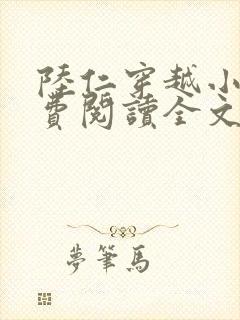 陸仁穿越小
費閱讀全文
夢筆馬